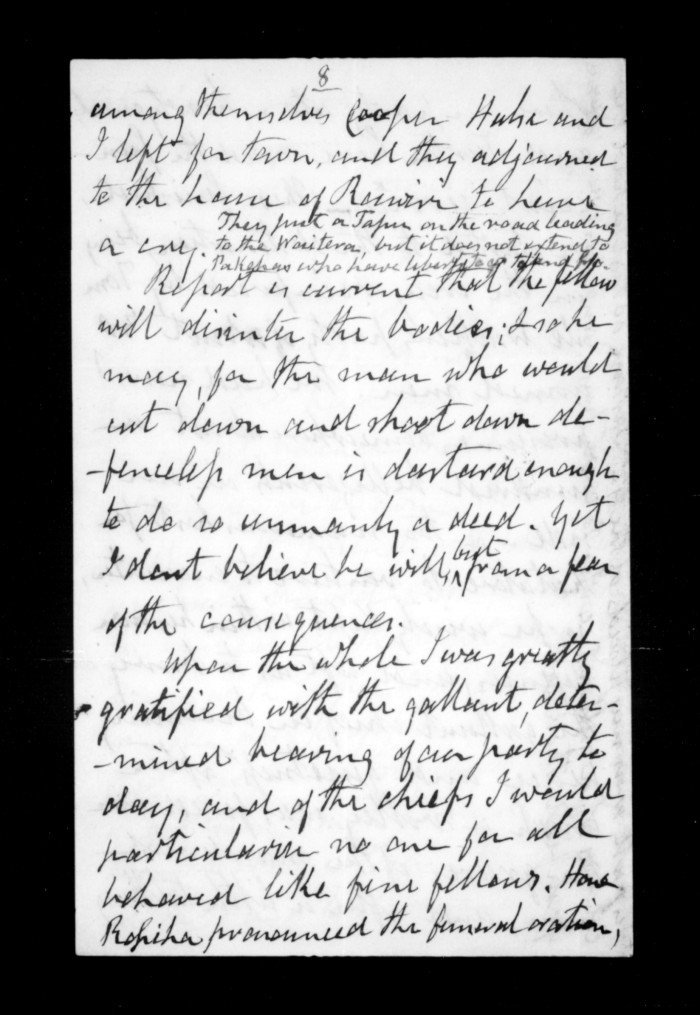 8
among themselves Cooper Halse and
I left for town, and they adjourned
to the house of Rawiri to have
a cry. They put a Tapu on the road leading
to the Waitera, but it does not extend to
Pakehas who have liberty to
Report is current that the fellow
will disinter the bodies; & so he
may, for the man who would
cut down and shoot down de-
-fenceless men is dastard enough
to do so unmanly a deed. Yet
I dont believe he will, but from a fear
of the consequences.
Upon the whole I was greatly
gratified with the gallant, deter-
-mined bearing of our party to
day, and of the chiefs I would
particularize no one for all
behaved like fine fellows. Hone
Ropiha pronounced the funeral oration,